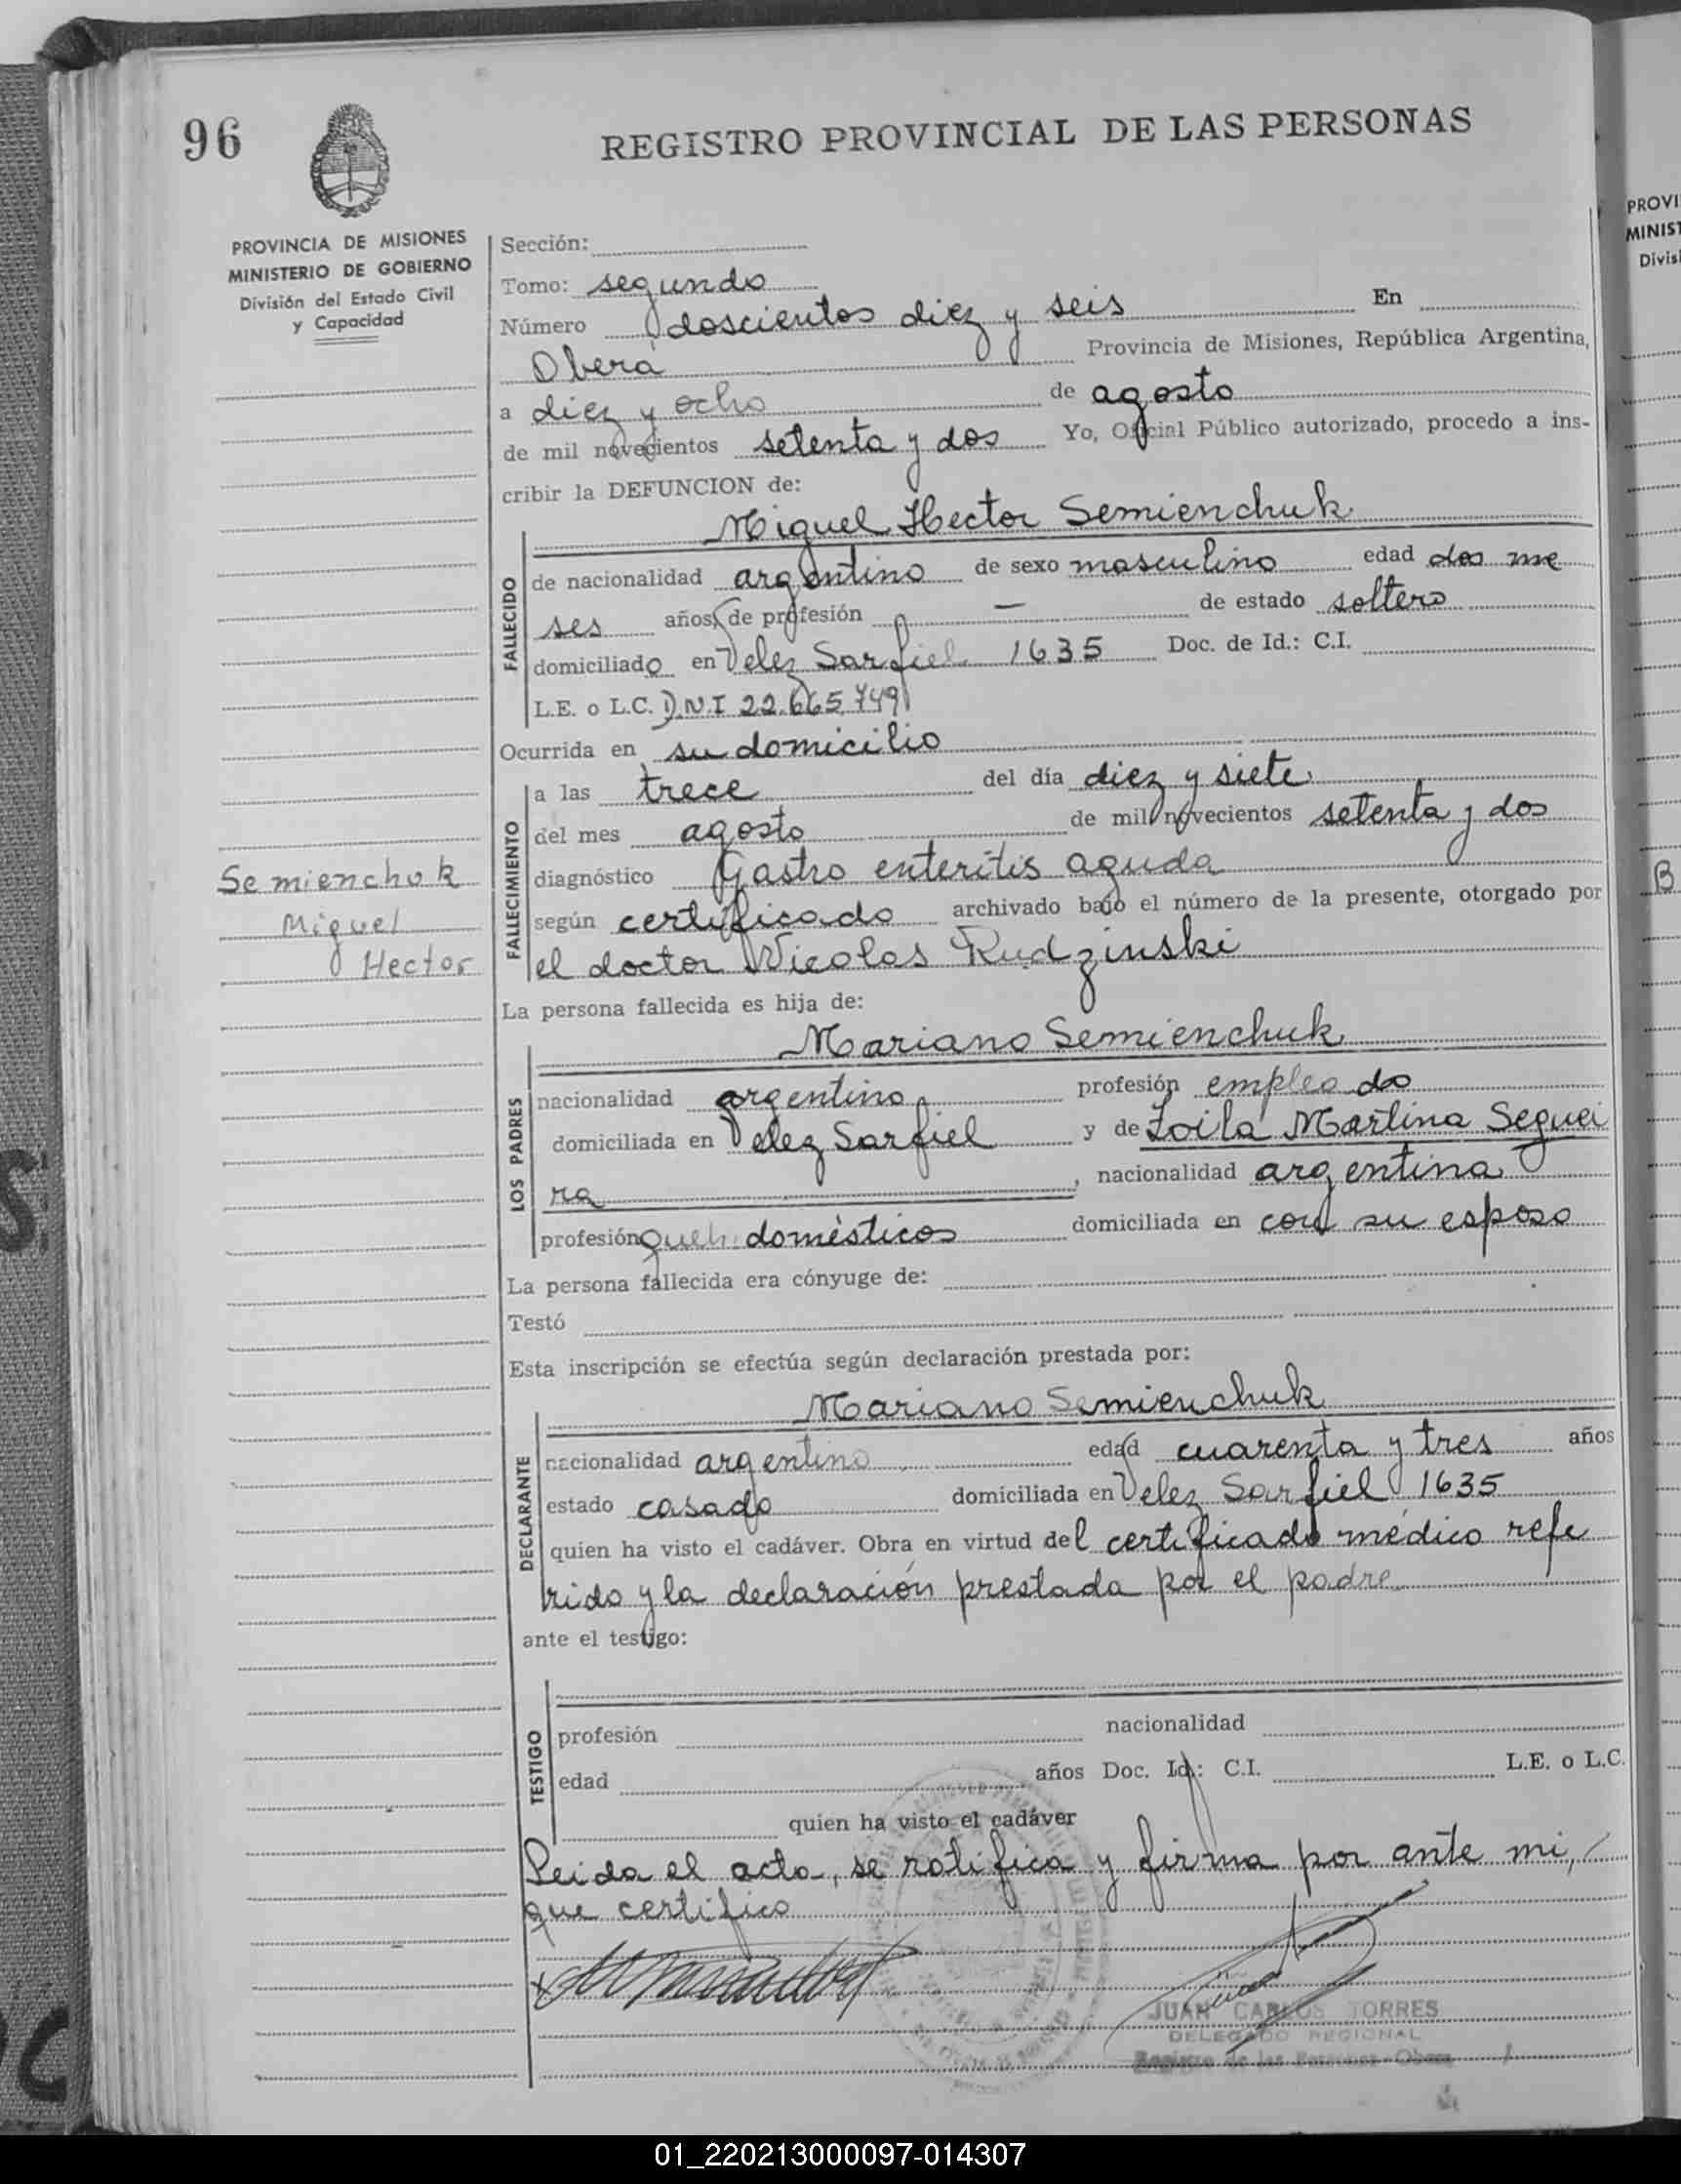 96
REGISTRO PROVINCIAL DE LAS PERSONAS
PROVINCIA DE MISIONES
MINISTERIO DE GOBIERNO
División del Estado Civil
y Capacidad
Sección:
Tomo: segundo
Número doscientos diez y seis En
Oberá Provincia de Misiones, República Argentina,
a diez y ocho de agosto
de mil novecientos setenta y dos Yo, Oficial Público autorizado, procedo a ins-
cribir la DEFUNCION de:
Miguel Hector Semienchuk
FALLECIDO
de nacionalidad argentino de sexo masculino edad dos me
ses años, de profesión — de estado soltero
domiciliado en Velez Sarfiel 1635 Doc. de Id.: C.I.
L.E. o L.C. D.N.I 22.665.749
Ocurrida en su domicilio
FALLECIMIENTO
a las trece del día diez y siete
del mes agosto de mil novecientos setenta y dos
diagnóstico Gastro enteritis aguda
según certificado archivado bajo el número de la presente, otorgado por
el doctor Nicolas Rudzinski
Semienchuk
Miguel
Hector
La persona fallecida es hija de:
Mariano Semienchuk
LOS PADRES
nacionalidad argentino profesión empleado
domiciliada en Velez Sarfiel y de Zoila Martina Seguei
ra , nacionalidad argentina
profesión queh. domésticos domiciliada en con su esposo
La persona fallecida era cónyuge de:
Testó
Esta inscripción se efectúa según declaración prestada por:
Mariano Semienchuk
DECLARANTE
nacionalidad argentino edad cuarenta y tres años
estado casado domiciliada en Velez Sarfiel 1635
quien ha visto el cadáver. Obra en virtud del certificado médico refe
rido y la declaración prestada por el padre
ante el testigo:
TESTIGO
profesión nacionalidad
edad años Doc. Id.: C.I. L.E. o L.C.
quien ha visto el cadáver
Leida el acta, se ratifica y firma por ante mi,
que certifico
JUAN CARLOS TORRES
DELEGADO REGIONAL
Registro de las Personas - Obera
PROVI
MINIST
Divisi
B
01_220213000097-014307